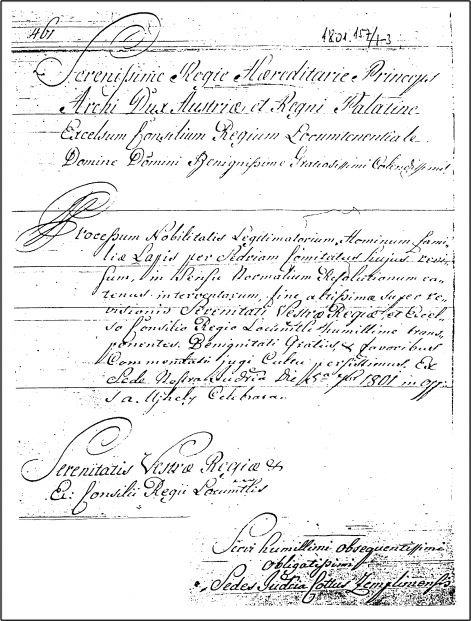 461
1801 157/1-3
Serenissime Regie Hæreditarie Princeps
Archi Dux Austriæ, et Regni Palatine
Excelsum Consilium Regium Locumtenentiale
Domine Domini Benignissime Gratiosissimi Colendissimi
Processum Nobilitatis Legitimatorium, Hominum fami
liæ Lapis per Sedriam Comitatus hujus revi
sum, in Sensu Normalium Resolutionum ea
tenus interventarum, fine altissimæ Super re
visionis Serenitati Vestræ Regiæ, et Excel
so Consilio Regio Locumtli humillime trans
ponentes. Benignitati Gratiis, & favoribus
Commendati jugi Cultu persistimus. Ex
Sede Nostra Judria Die 1801 in Opp
S a. Ujhely Celebrata.
Serenitatis Vestræ Regiæ &
Ex: Consilii Regii Locumtlis
Servi humillimi obsequentissimi
obligatissimi
Sedes Judria Cottus Zempliniensis